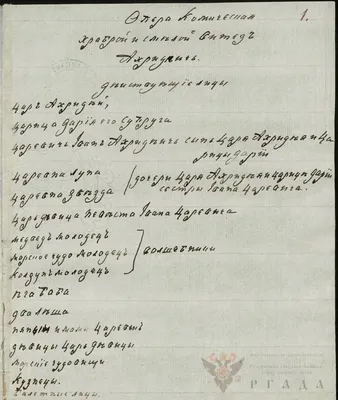 1.
Опера Комическая
храброй и смѣлой витезь
Ахридѣичь.
дѣиствующие лицы
Царь Ахридѣй,
Царица Дария его Супруга
Царевичь Iванъ Ахридѣичь сынъ Царя Ахридѣя и Ца
рицы дарiи
Царевна Луна
Царевна Звѣзда
дочери Царя Ахридѣя и царицы Дарiи
сестры Iвана Царевича.
Царь дѣвица невѣста Iвана Царевича
медведь молодецъ
морское чудо молодецъ
Колдунъ молодецъ
волшебники
яга баба
два лѣша
няньки и мамы Царевенъ
дѣвицы Царь дѣвицы
морские чудовищи
Кузнецы.
РГАДА